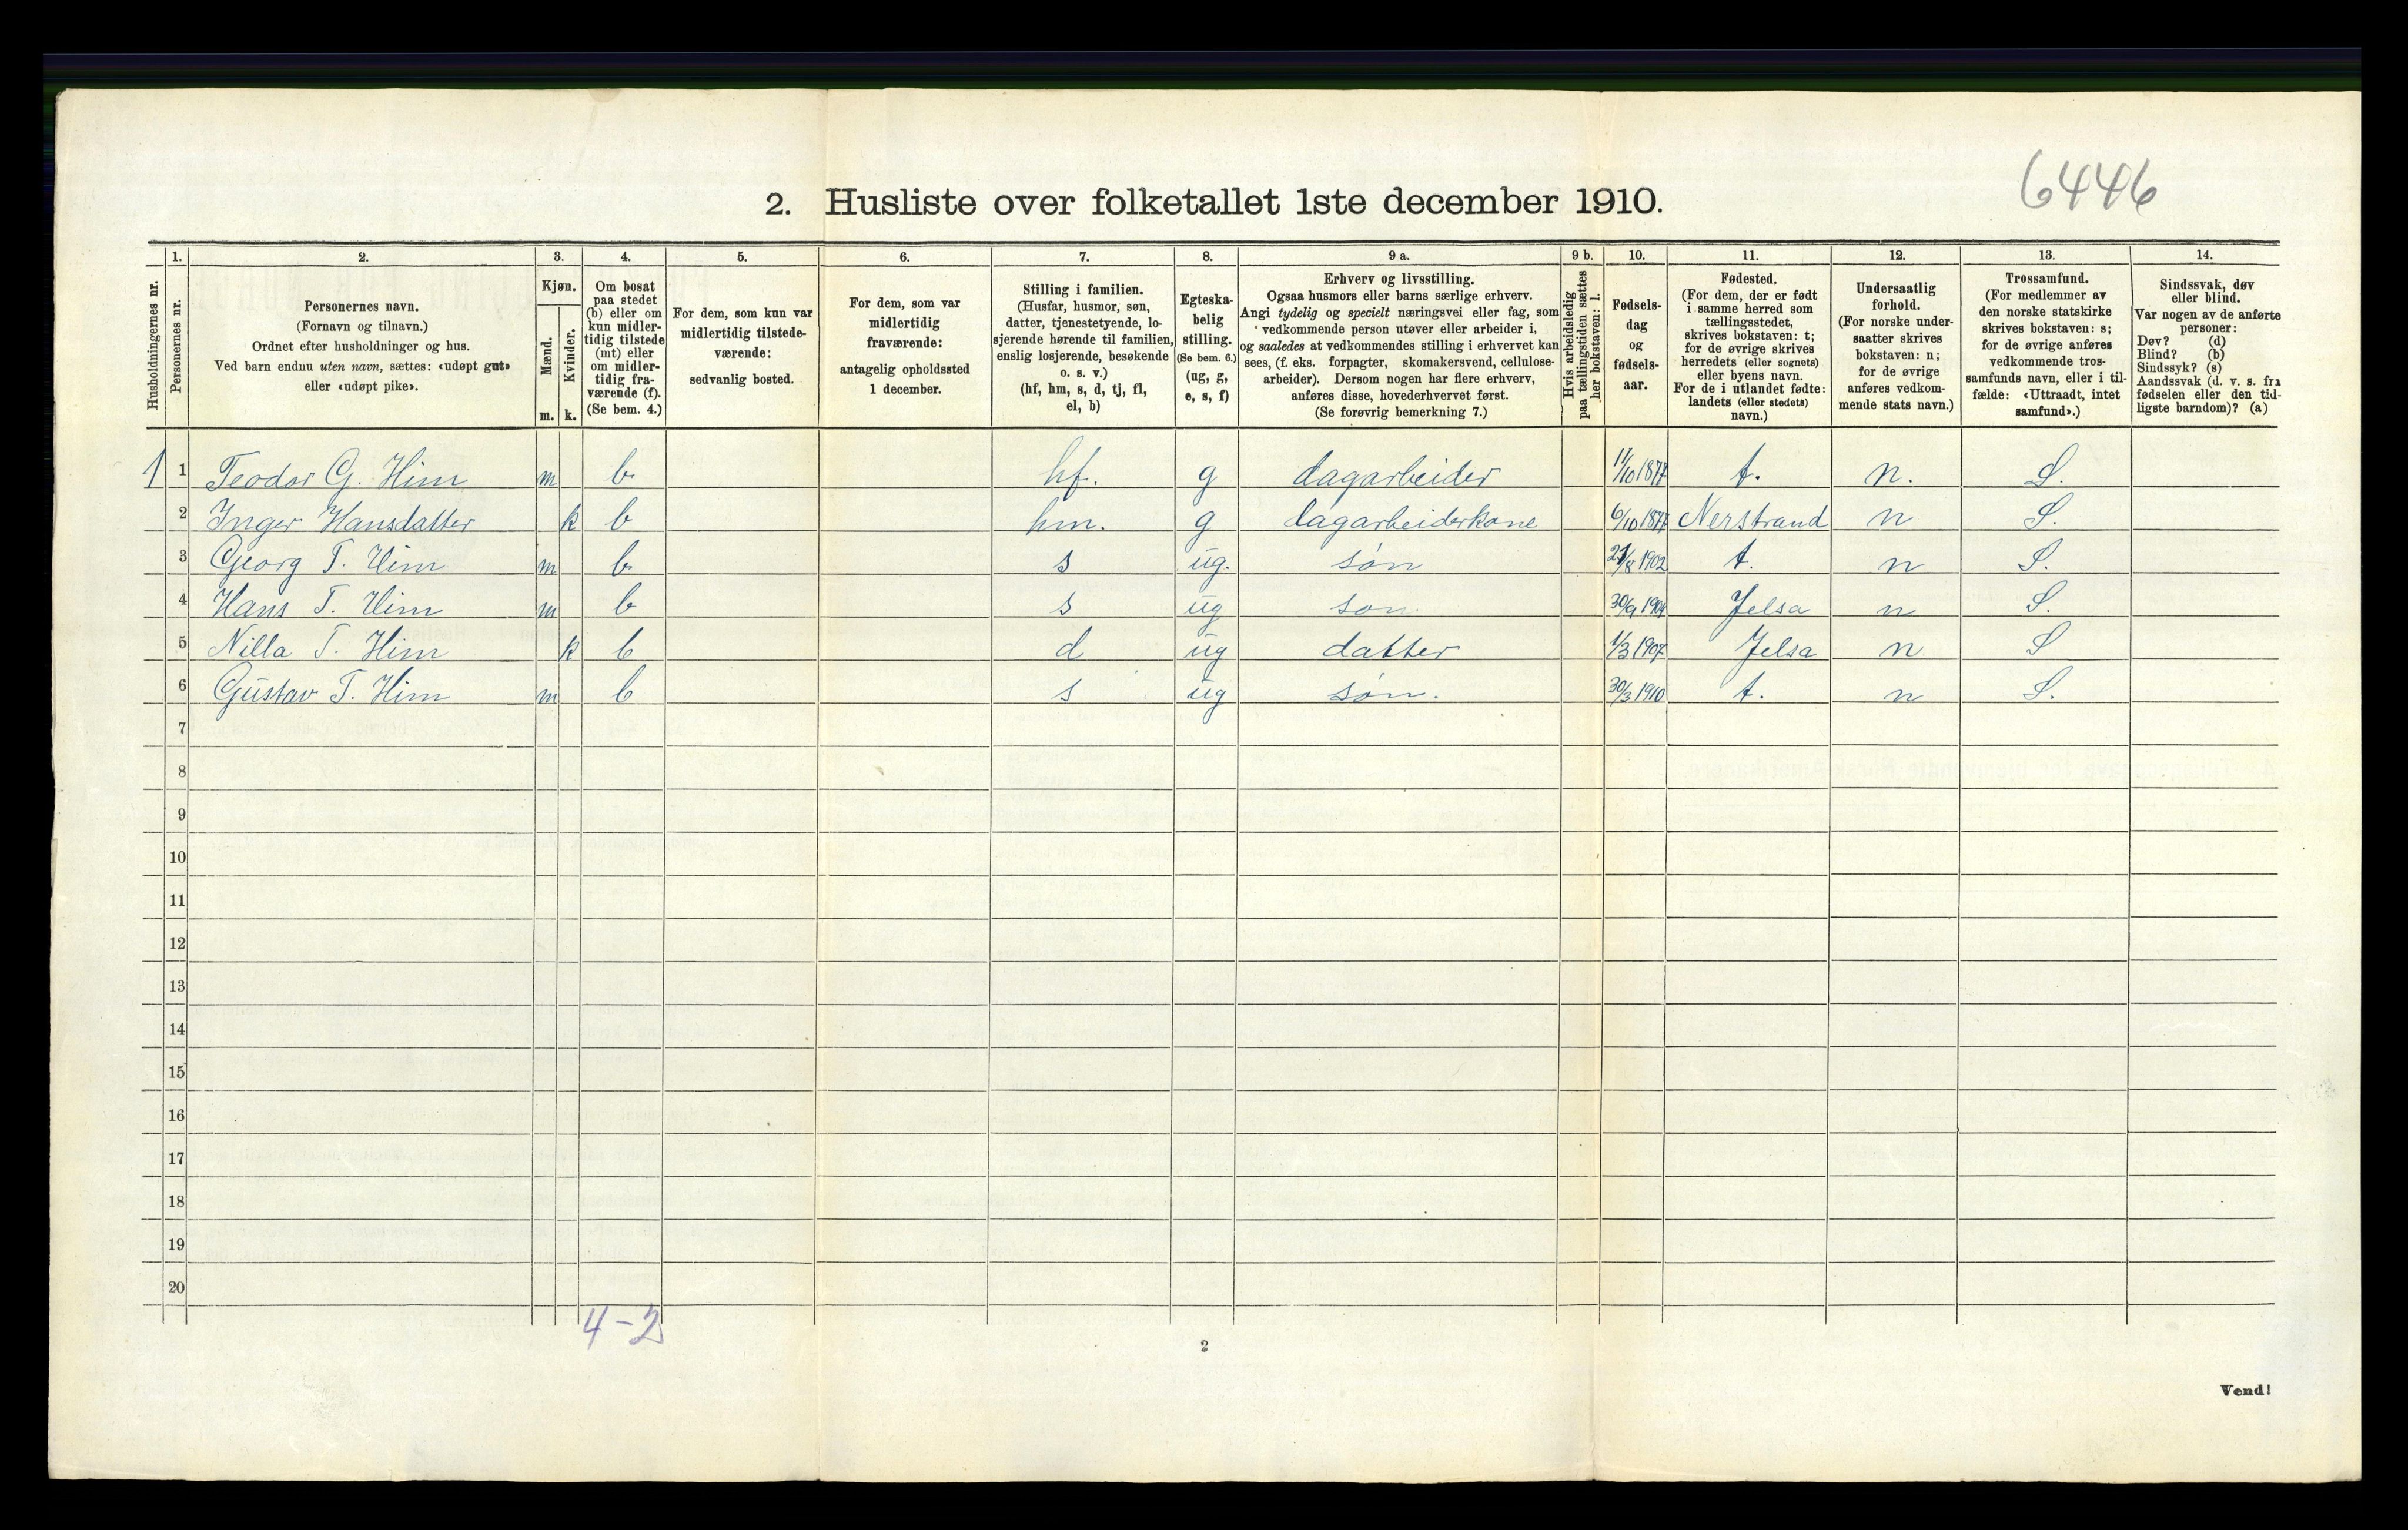 6446
2. Husliste over folketallet 1ste december 1910.
Husholdningernes nr.
1.
Personernes nr.
2.
Personernes navn.
(Fornavn og tilnavn.)
Ordnet efter husholdninger og hus.
Ved barn endnu uten navn, sættes: «udøpt gut»
eller «udøpt pike».
3.
Kjøn.
Mænd.
Kvinder.
m. k.
4.
Om bosat
paa stedet
(b) eller om
kun midler-
tidig tilstede
(mt) eller
om midler-
tidig fra-
værende (f).
(Se bem. 4.)
5.
For dem, som kun var
midlertidig tilstede-
værende:
sedvanlig bosted.
6.
For dem, som var
midlertidig
fraværende:
antagelig opholdssted
1 december.
7.
Stilling i familien.
(Husfar, husmor, søn,
datter, tjenestetyende, lo-
sjerende hørende til familien,
enslig losjerende, besøkende
o. s. v.)
(hf, hm, s, d, tj, fl,
el, b)
8.
Egteska-
belig
stilling.
(Se bem. 6.)
(ug, g,
e, s, f)
9 a.
Erhverv og livsstilling.
Ogsaa husmors eller barns særlige erhverv.
Angi tydelig og specielt næringsvei eller fag, som
vedkommende person utøver eller arbeider i,
og saaledes at vedkommendes stilling i erhvervet kan
sees, (f. eks. forpagter, skomakersvend, cellulose-
arbeider). Dersom nogen har flere erhverv,
anføres disse, hovederhvervet først.
(Se forøvrig bemerkning 7.)
9 b.
Hvis arbeidsledig
paa tællingstiden sættes
her bokstaven: l.
10.
Fødsels-
dag
og
fødsels-
aar.
11.
Fødested.
(For dem, der er født
i samme herred som
tællingsstedet,
skrives bokstaven: t;
for de øvrige skrives
herredets (eller sognets)
eller byens navn.
For de i utlandet fødte:
landets (eller stedets)
navn.)
12.
Undersaatlig
forhold.
(For norske under-
saatter skrives
bokstaven: n;
for de øvrige
anføres vedkom-
mende stats navn.)
13.
Trossamfund.
(For medlemmer av
den norske statskirke
skrives bokstaven: s;
for de øvrige anføres
vedkommende tros-
samfunds navn, eller i til-
fælde: «Uttraadt, intet
samfund».)
14.
Sindssvak, døv
eller blind.
Var nogen av de anførte
personer:
Døv? (d)
Blind? (b)
Sindssyk? (s)
Aandssvak (d. v. s. fra
fødselen eller den tid-
ligste barndom)? (a)
1 1 Teodor G. Him m b hf. g dagarbeider 11/10 1877 t. n. S.
2 Inger Hansdatter k b hm. g dagarbeiderkone 6/10 1877 Nerstrand n S.
3 Georg T. Him m b s ug. søn 1902 t. n S.
4 Hans T. Him m b s ug søn 30/9 1904 Jelsa n S.
5 Nilla T. Him k b d ug datter 1/3 1907 Jelsa n S
6 Gustav T. Him m b s ug søn. 30/3 1910 t. n S.
7
8
9
10
11
12
13
14
15
16
17
18
19
20
4-2
2
Vend!